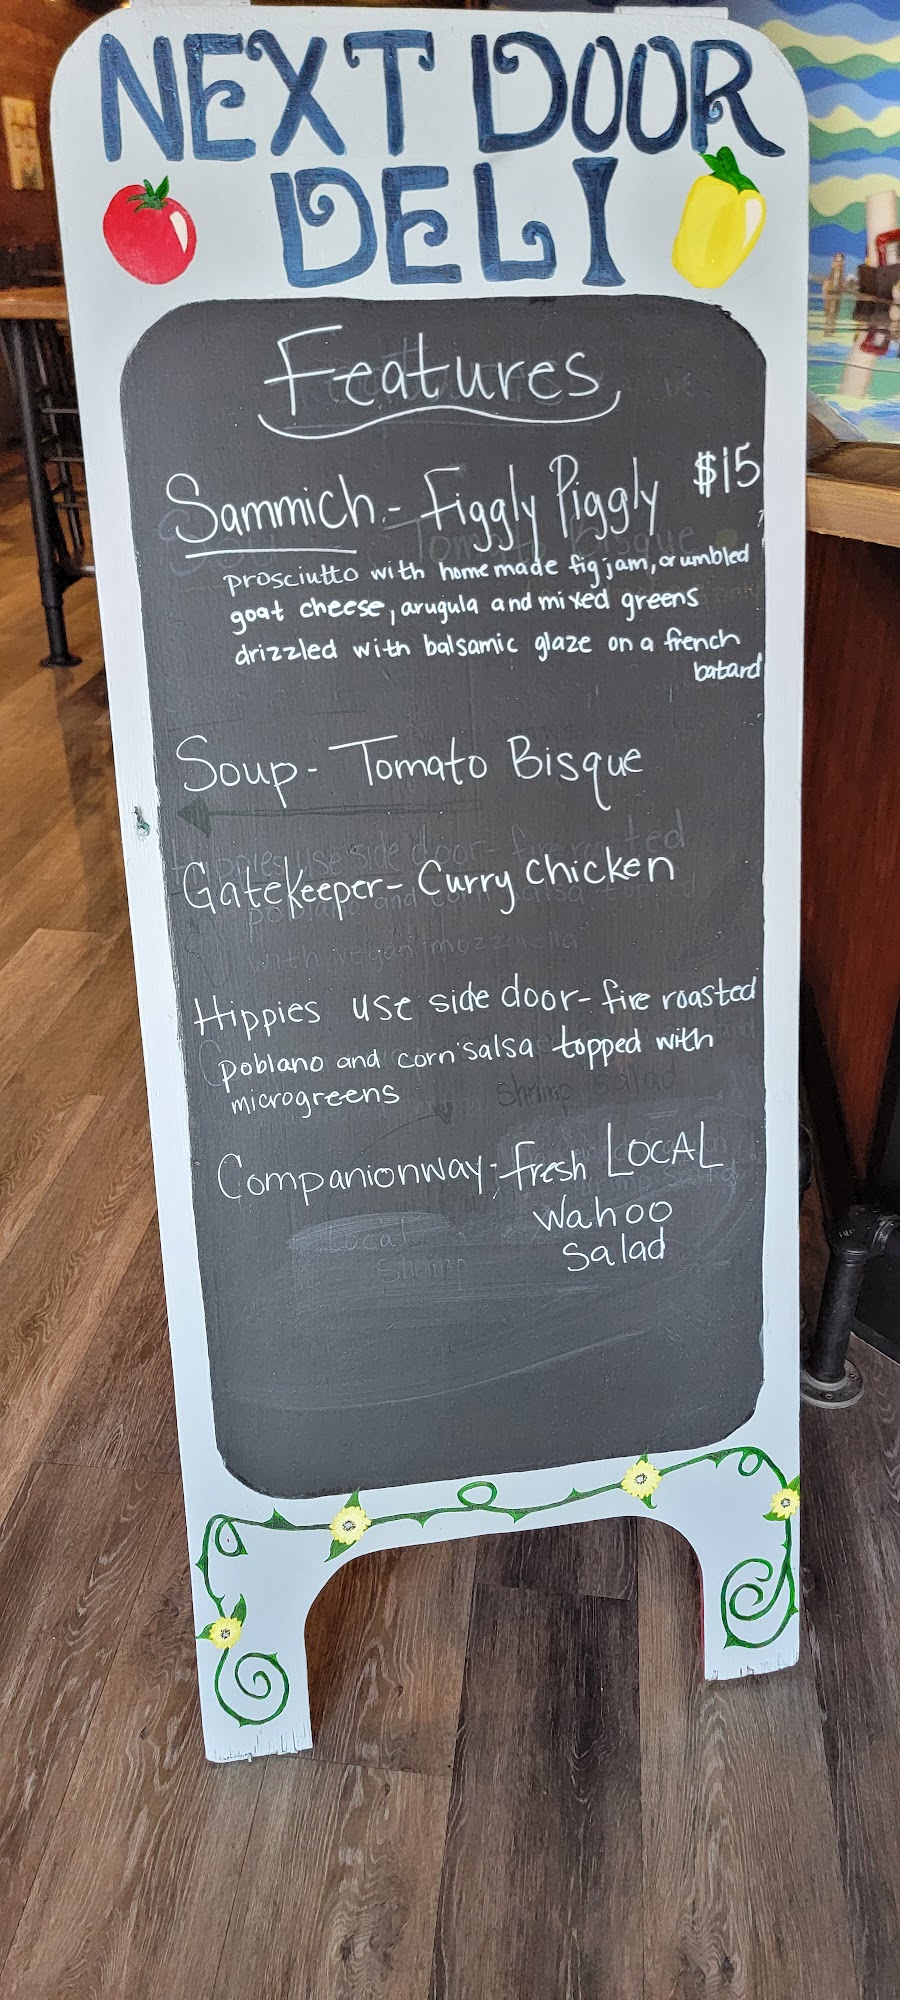 NEXT DOOR
DELI
Features
Sammich - Figgly Piggly $15
prosciutto with homemade fig jam, crumbled
goat cheese, arugula and mixed greens
drizzled with balsamic glaze on a french
batard
Soup - Tomato Bisque
Gatekeeper - Curry Chicken
Hippies use side door - fire roasted
poblano and corn salsa topped with
microgreens
Companionway - fresh LOCAL
wahoo
salad